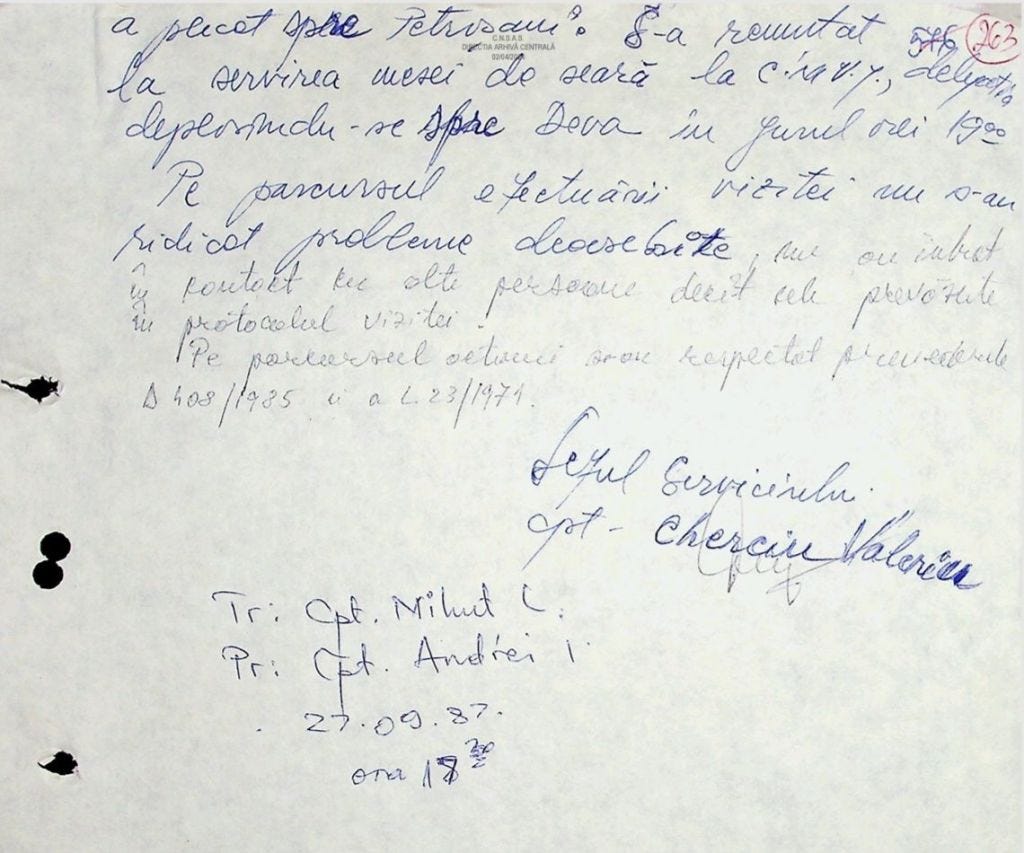 a plecat spre Petroșani. S-a renunțat
263
C.N.S.A.S.
DIRECȚIA ARHIVĂ CENTRALĂ
la servirea mesei de seară la C.M.V.J., delegația
deplasîndu-se spre Deva în jurul orei 19⁰⁰
Pe parcursul efectuării vizitei nu s-au
ridicat probleme deosebite, nu au intrat
în contact cu alte persoane decît cele prevăzute
în protocolul vizitei.
Pe parcursul acțiunii s-au respectat prevederile
D 408/1985 și a L. 23/1971.
Șeful Serviciului
cpt - Cherciu Valeriu
Tr: Cpt. Mihuț L.
Pr: Cpt. Andrei I.
27.09.87.
ora 18